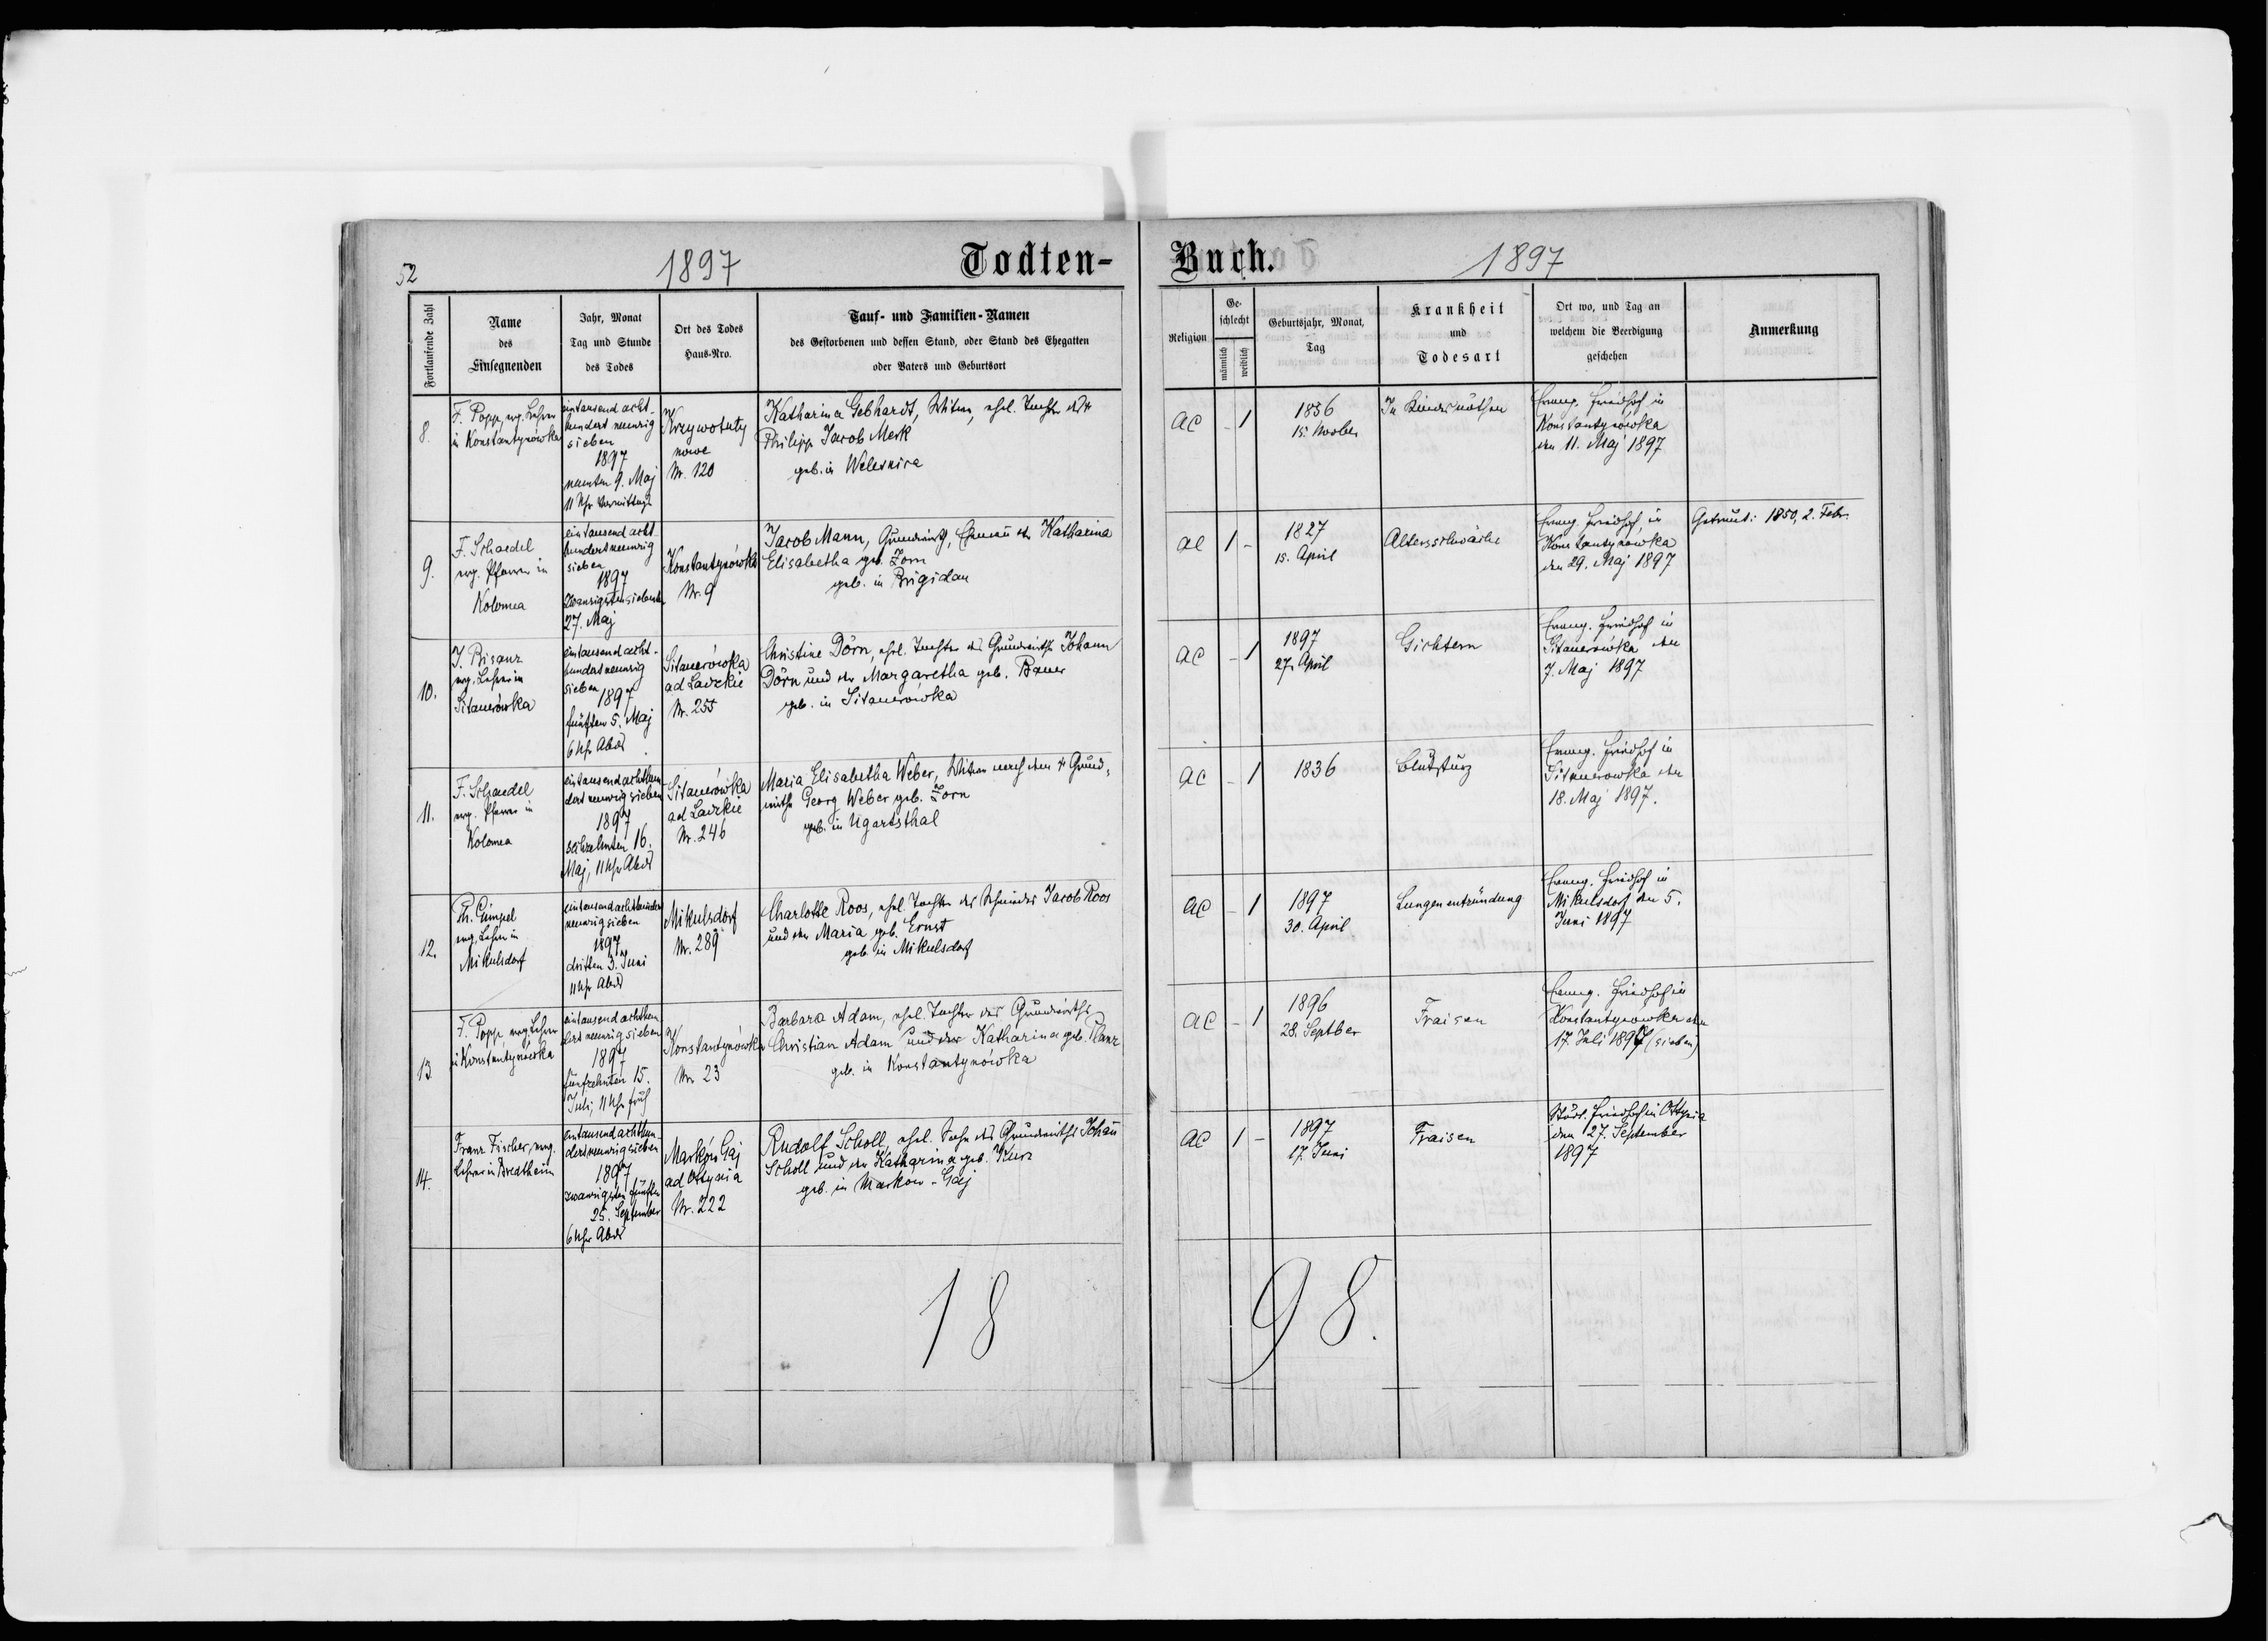 52
1897
Todten-
Buch.
1897
Fortlaufende Zahl
Name
des
Einsegnenden
Jahr, Monat
Tag und Stunde
des Todes
Ort des Todes
Haus-Nro.
Tauf- und Familien-Namen
des Gestorbenen und dessen Stand, oder Stand des Ehegatten
oder Vaters und Geburtsort
Religion
Ge-
schlecht
männlich
weiblich
Geburtsjahr, Monat,
Tag
Krankheit
und
Todesart
Ort wo, und Tag an
welchem die Beerdigung
geschehen
Anmerkung
8.
F. Popp, evg. Lehrer
in Konstantynówka
eintausend acht-
hundert neunzig
sieben
1897
neunten 9. Maj
11 Uhr Vormittags
Krzywotuly
nowe
Nr. 120
Katharina Gebhardt, Witwe, ehel. Tochter des
Philipp Jacob Merk
geb. in Welesnica
AC
- 1
1836
15. Novber
In Kindsnöthen
Evang. Friedhof in
Konstantynówka
den 11. Maj 1897
9.
F. Schaedel
evg. Pfarrer in
Kolomea
eintausend acht-
hundert neunzig
sieben
1897
zwanzigsten siebenten
27. Maj
Konstantynówka
Nr. 9
Jacob Mann, Grundwirth, Ehemann der Katharina
Elisabetha geb. Zorn
geb. in Brigidau
AC
1 -
1827
15. April
Altersschwäche
Evang. Friedhof in
Konstantynowka
den 29. Maj 1897
Getraut: 1850, 2. Febr.
10.
J. Prisanz
evg. Lehrer in
Sitauerówka
eintausend acht-
hundert neunzig
sieben 1897
fünften 5. Maj
6 Uhr Abds
Sitauerówka
ad Ladzkie
Nr. 255
Christine Dörn, ehel. Tochter des Grundwirths Johann
Dörn und der Margaretha geb. Bauer
geb. in Sitauerówka
AC
- 1
1897
27. April
Gichtern
Evang. Friedhof in
Sitauerówka den
7. Maj 1897
11.
F. Schaedel
evg. Pfarrer in
Kolomea
eintausend achthun
dert neunzig sieben
1897
sechzehnten 16.
Maj, 11 Uhr Abds
Sitauerówka
ad Ladzkie
Nr. 246
Maria Elisabetha Weber, Witwe nach dem + Grund-
wirth Georg Weber geb. Zorn
geb. in Ugartsthal
AC
- 1
1836
Blutsturz
Evang. Friedhof in
Sitauerowka den
18. Maj 1897.
12.
Ph. Gimpel
evg. Lehrer in
Mikulsdorf
eintausend achthundert
neunzig sieben
1897
dritten 3. Juni
11 Uhr Abds
Mikulsdorf
Nr. 289
Charlotte Roos, ehel. Tochter des Schmiedes Jacob Roos
und der Maria, geb. Ernst
geb. in Mikulsdorf
AC
- 1
1897
30. April
Lungenentzündung
Evang. Friedhof in
Mikulsdorf den 5.
Juni 1897
13.
F. Popp, evg. Lehrer
in Konstantynówka
eintausend achthun-
dert neunzig sieben
1897
fünfzehnten 15.
Juli, 11 Uhr früh
Konstantynówka
Nr. 23
Barbara Adam, ehel. Tochter des Grundwirths
Christian Adam und der Katharina geb. Planz
geb. in Konstantynówka
AC
- 1
1896
28. Septber
Fraisen
Evang. Friedhof in
Konstantynówka den
17. Juli 1897 (sieben)
14.
Franz Fischer, evg.
Lehrer in Bredtheim
eintausend achthun-
dert neunzig sieben
1897
zwanzigsten fünften
25. September
6 Uhr Abds
Marków Gaj
ad Ottynia
Nr. 222
Rudolf Scholl, ehel. Sohn des Grundwirths Johann
Scholl und der Katharina geb. Kurz
geb. in Markow-Gaj
AC
1 -
1897
17. Juni
Fraisen
Städt. Friedhof in Ottynia
den 27. September
1897
18
98.